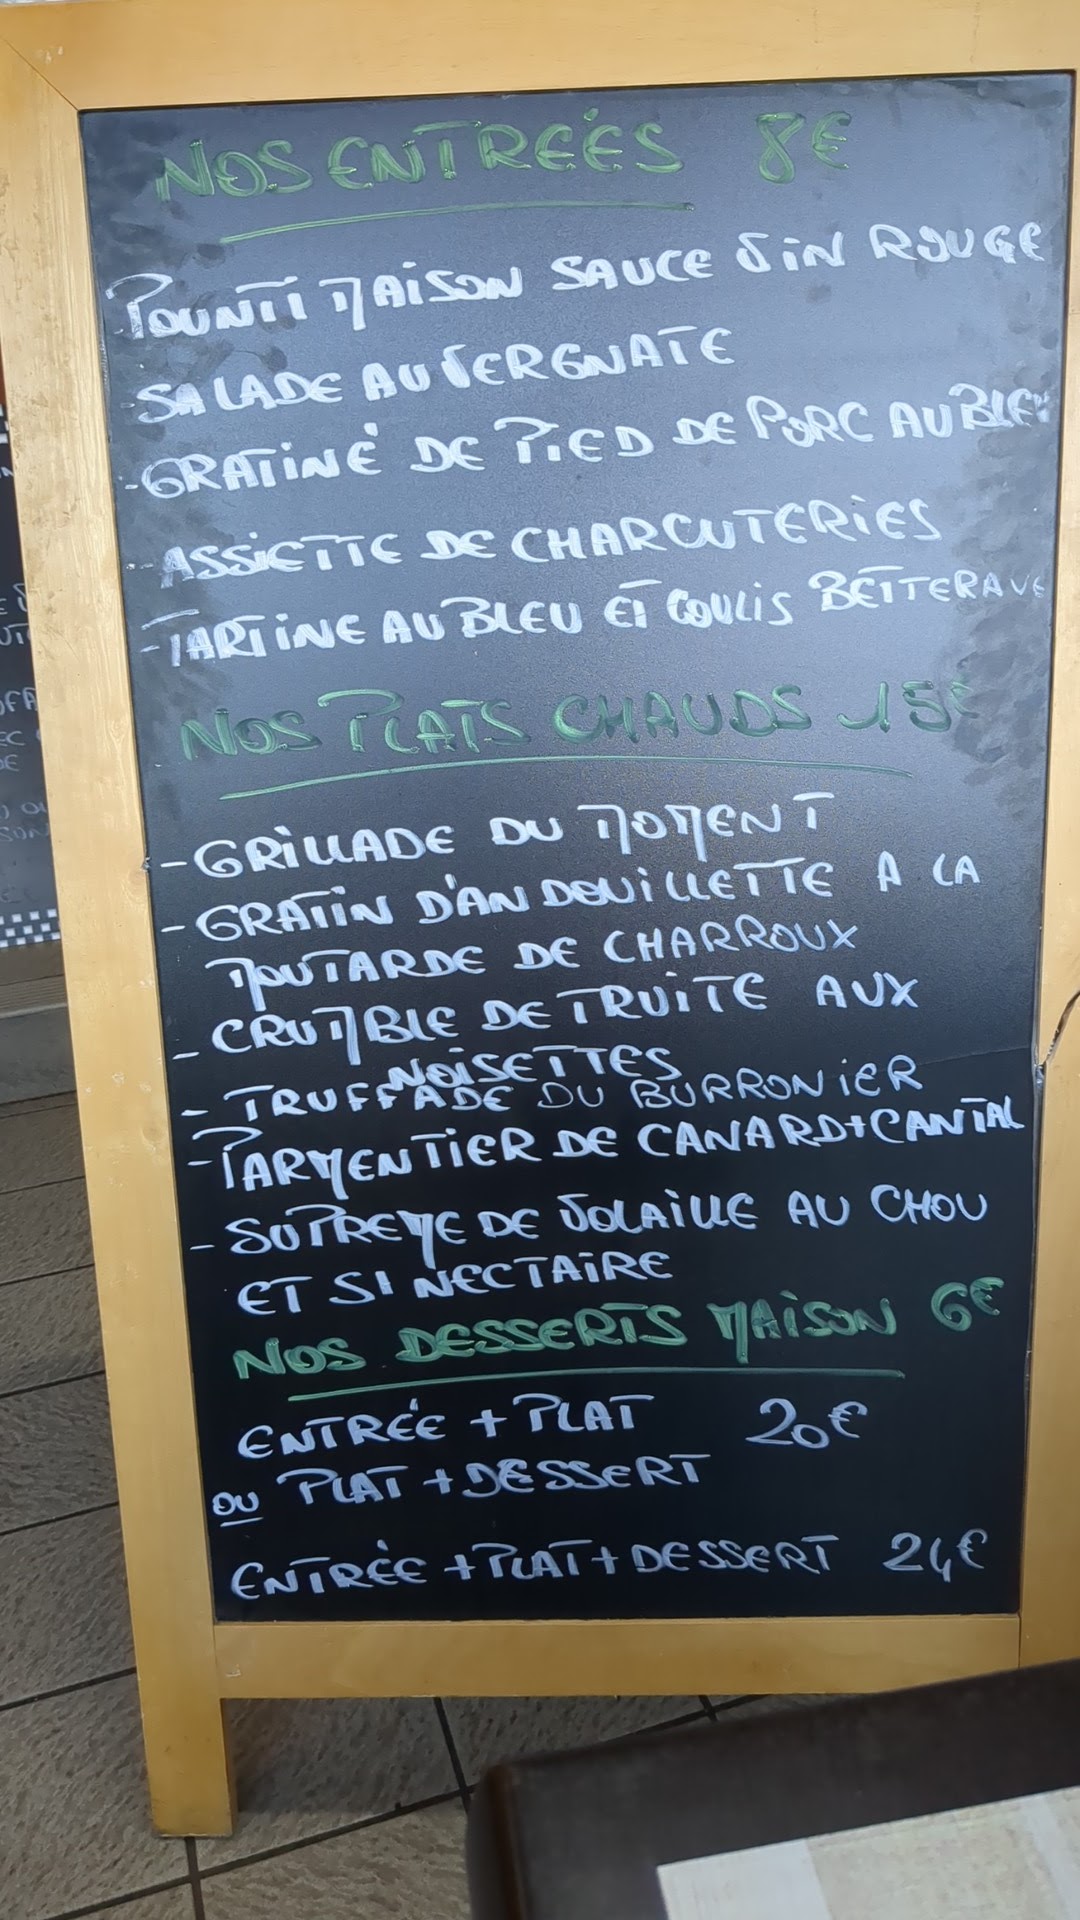 NOS ENTRÉES 8€
POUNTI MAISON SAUCE VIN ROUGE
-SALADE AUVERGNATE
-GRATINÉ DE PIED DE PORC AU BLEU
-ASSIETTE DE CHARCUTERIES
-TARTINE AU BLEU ET COULIS BETTERAVE
NOS PLATS CHAUDS 15€
-GRILLADE DU MOMENT
-GRATIN D'ANDOUILLETTE A LA
MOUTARDE DE CHARROUX
-CRUMBLE DE TRUITE AUX
NOISETTES
-TRUFFADE DU BURRONIER
-PARMENTIER DE CANARD+CANTAL
-SUPREME DE VOLAILLE AU CHOU
ET ST NECTAIRE
NOS DESSERTS MAISON 6€
ENTRÉE + PLAT 20€
OU PLAT + DESSERT
ENTRÉE + PLAT + DESSERT 24€